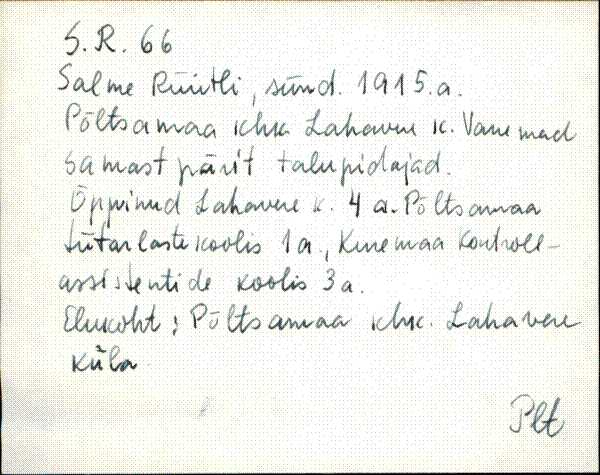 S.R. 66
Salme Rüütli, sünd. 1915.a.
Põltsamaa khk Lahavere k. Vanemad
samast pärit talupidajad.
Õppinud Lahavere k. 4 a. Põltsamaa
tütarlastekoolis 1a., Kuremaa Kontroll-
assistentide koolis 3a.
Elukoht: Põltsamaa khk. Lahavere
küla
Plt